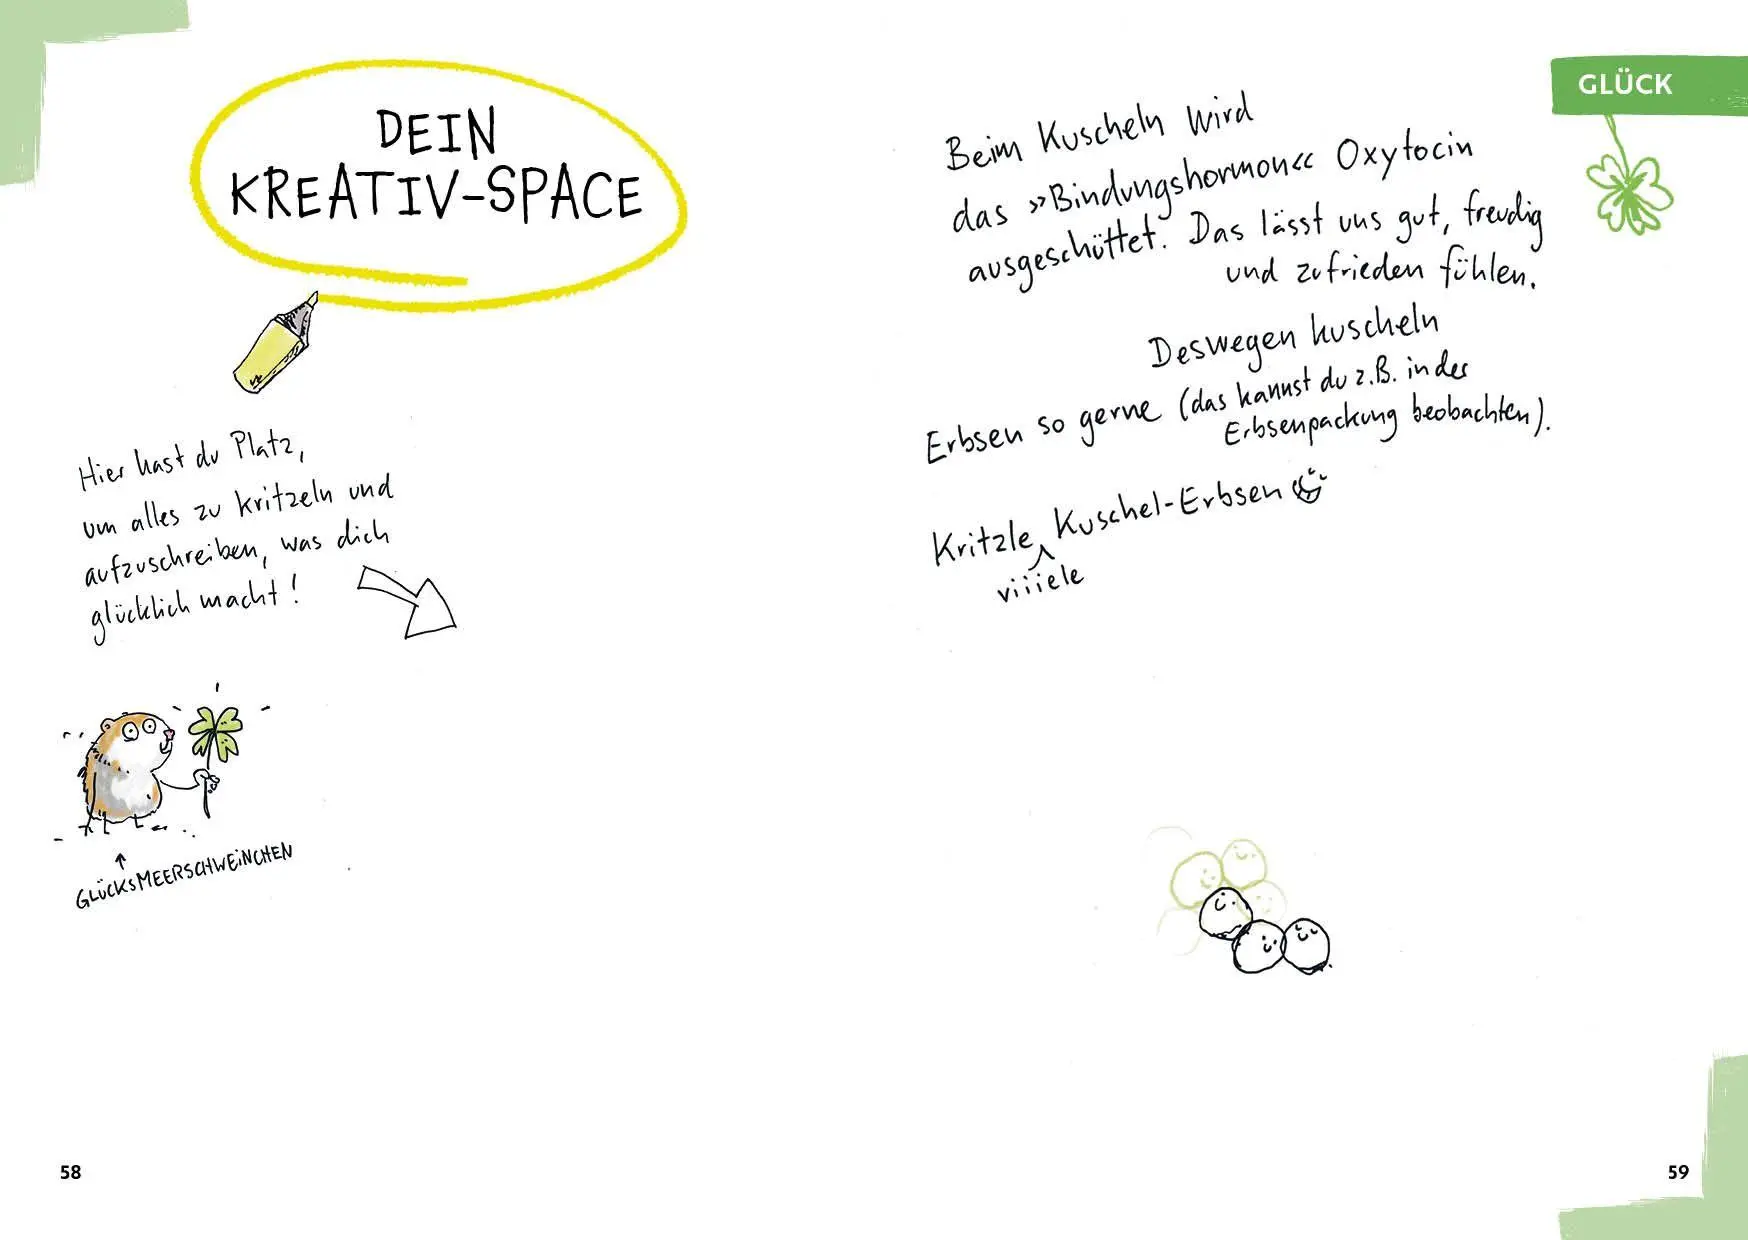 DEIN
KREATIV-SPACE
Hier hast du Platz,
um alles zu kritzeln und
aufzuschreiben, was dich
glücklich macht!
GLÜCKSMEERSCHWEiNCHEN
58
GLÜCK
Beim Kuscheln wird
das »Bindungshormon« Oxytocin
ausgeschüttet. Das lässt uns gut, freudig
und zufrieden fühlen.
Deswegen kuscheln
Erbsen so gerne (das kannst du z.B. in der
Erbsenpackung beobachten).
Kritzle Kuschel-Erbsen
viiiele
59